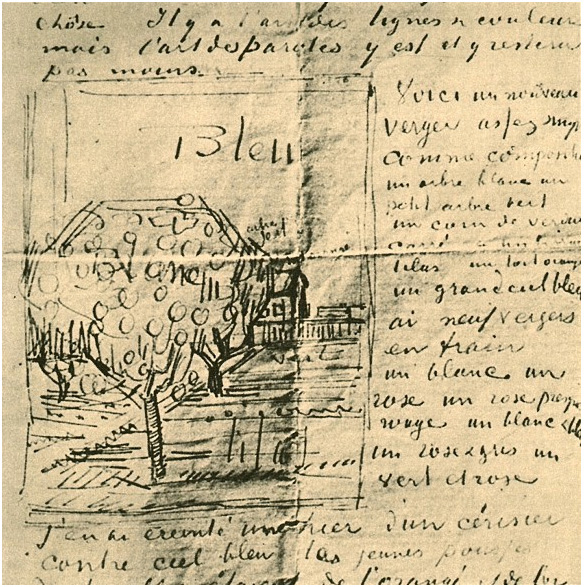 chôse. Il y a l'art des lignes & couleurs
mais l'art des paroles y est et y restera
pas moins.
Voici un nouveau
verger assez simple
comme composition
un arbre blanc un
petit arbre vert
un coin de verdure
carré
lilas un toit orange
un grand ciel bleu
ai neuf vergers
en train
un blanc un
rose un rose presque
rouge un blanc &
un rose & gris un
vert et rose
Bleu
arbre
vert
Blanc
vert
lilas
J'en ai éreinté un hier d'un cérisier
contre ciel bleu les jeunes pousses
de l'orangé